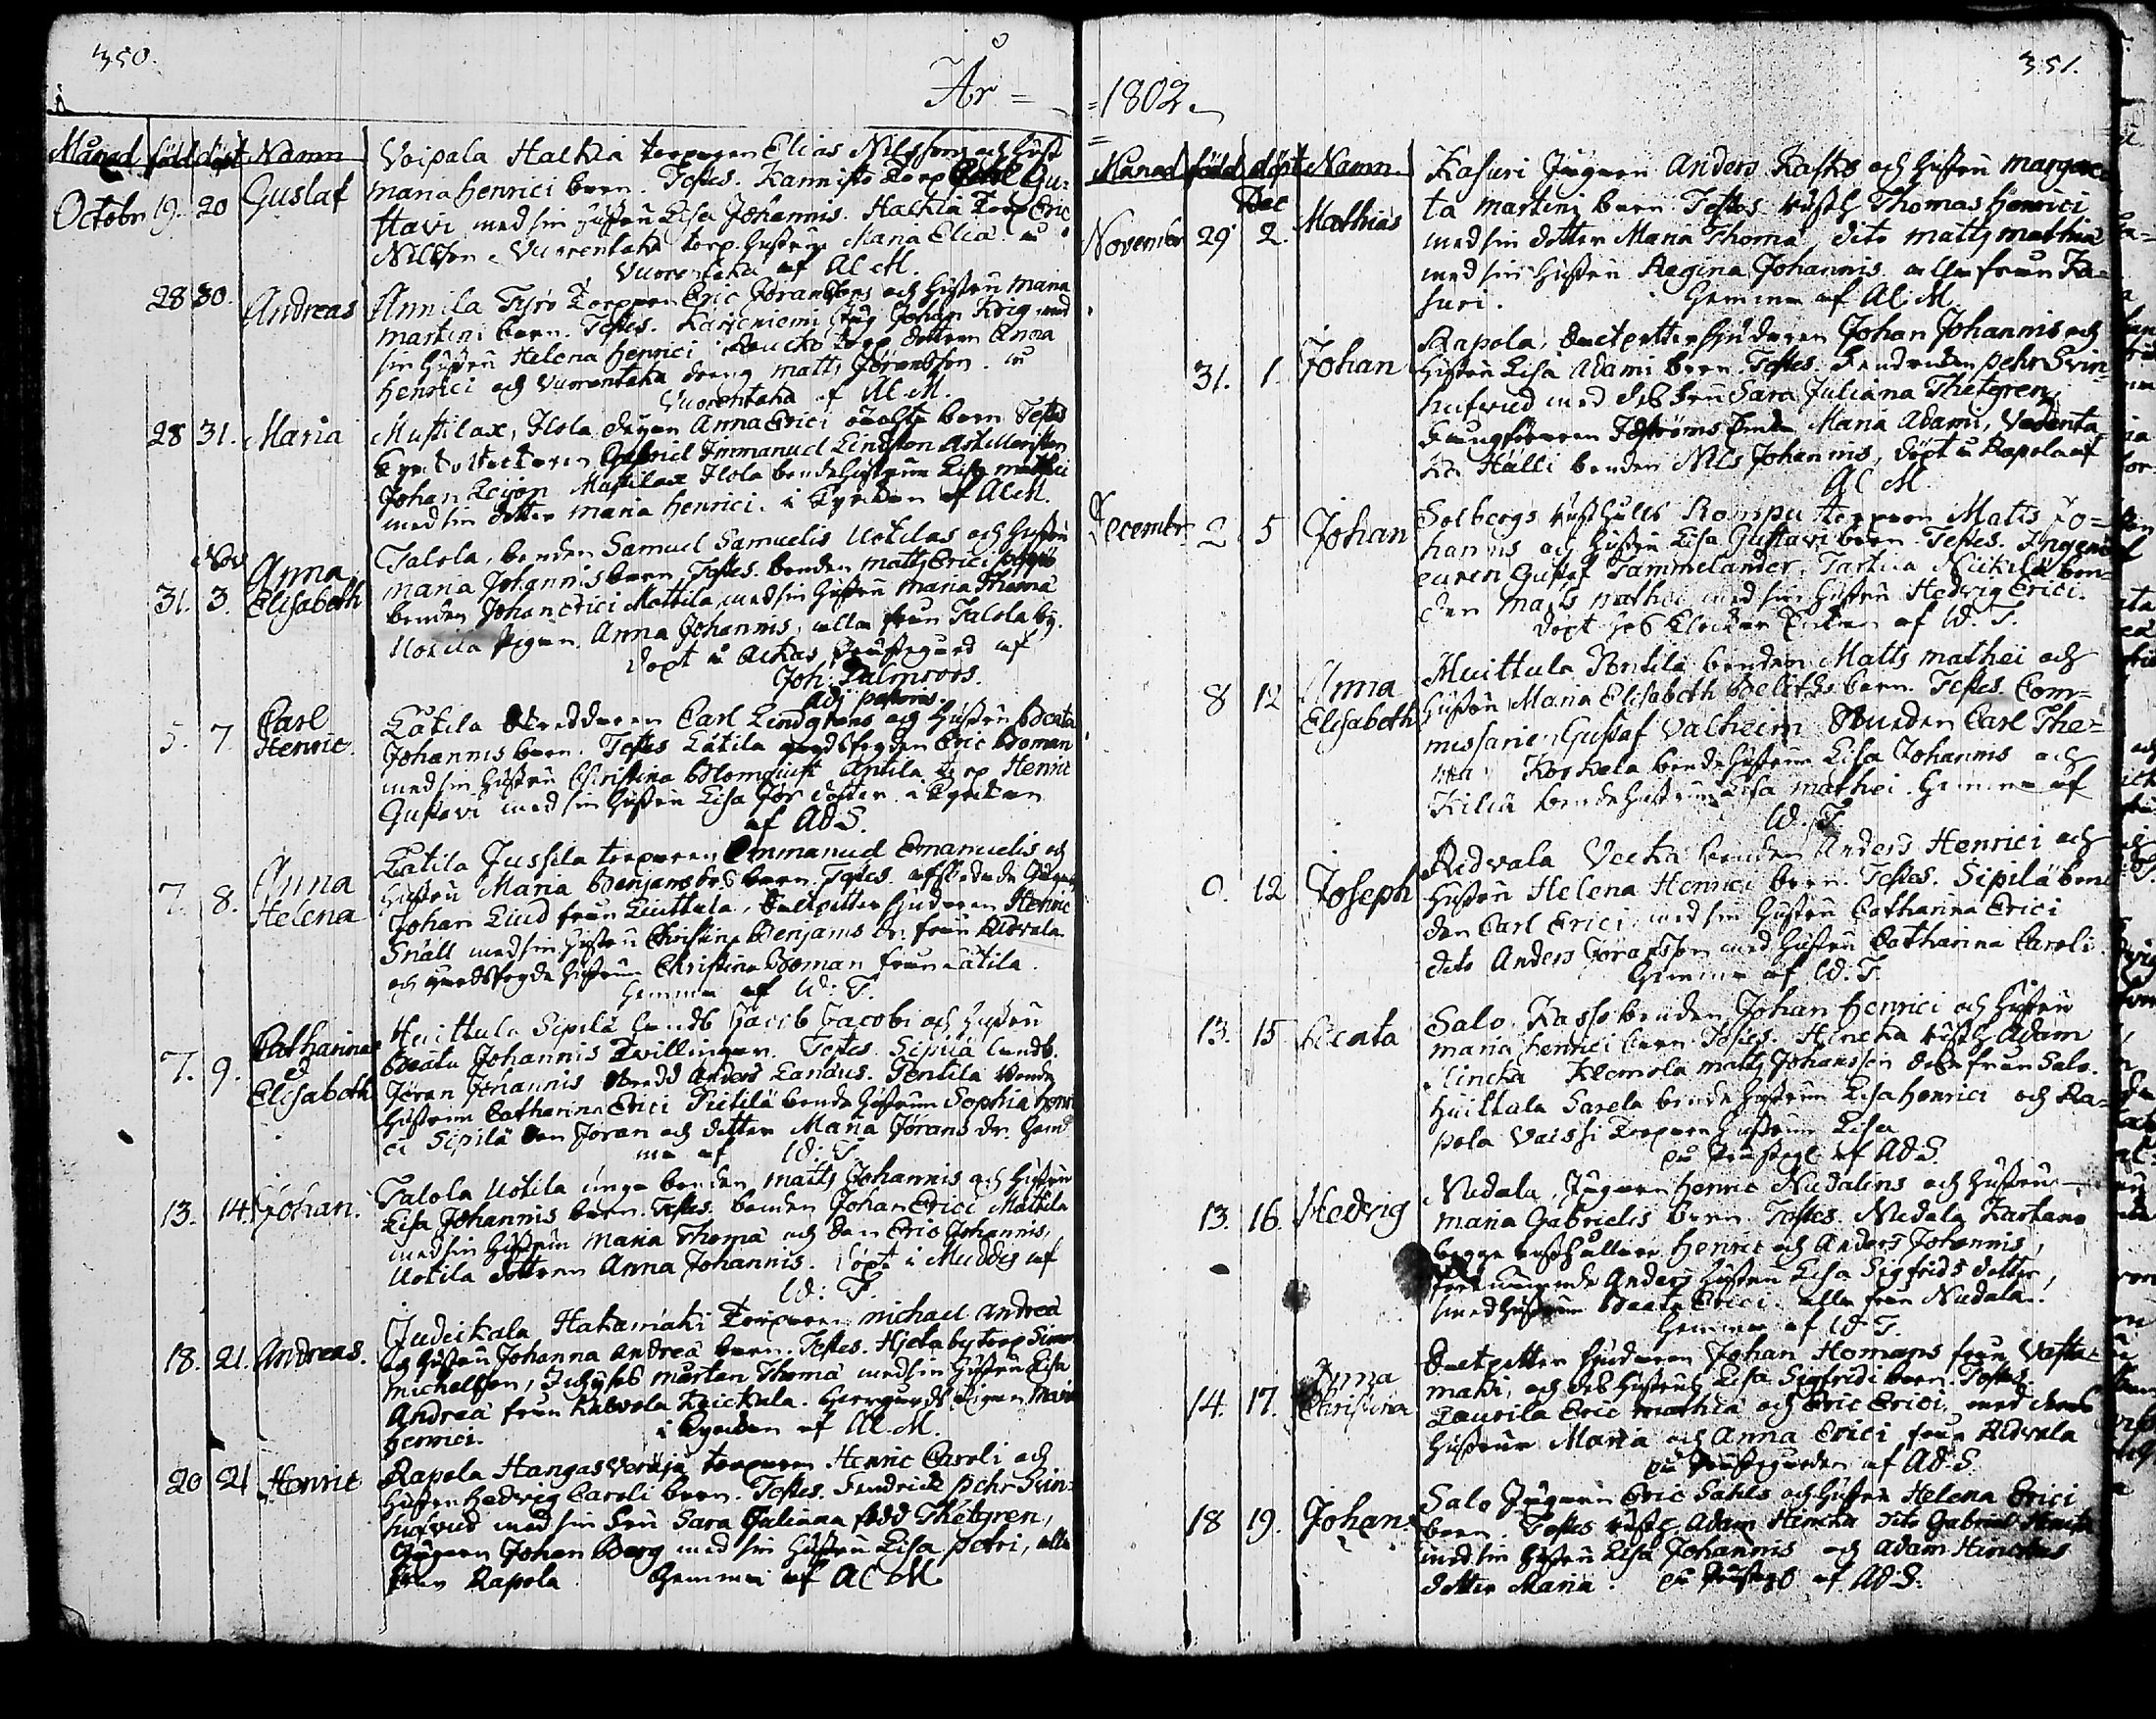 350.
År =
Månad född döpt Namn
Voipala Hackia torparen Elias Nilssons och hust
Octobr 19. 20 Gustaf
maria Henrici barn. Testes. Kannisto torp Gu=
stavi med sin hustru Lisa Johannis. Hackia torp Eric
Nilsson Vuorentaka torp. hustru Maria Eliæ. i
Vuorentaka af Al M.
28 30. Andreas
Annila Torparen Eric Jöranssons och hustru maria
martini barn. Testes. Karjeniemi Johan Krig med
sin hustru Helena Henrici torp dottren Anna
Henrici och Vuorentaka dräng matts Jöransson. i
Vuorentaka af Al M.
28 31. Maria
Mustilax, Ilola pigan Anna Erici oäkta barn Testes
Gabriel Immanuel Lindsten
Johan Leijon Mustilax Ilola bondehustrun Lisa mathiæ
med sin dotter maria Henrici. i Kyrckan af Al M.
Nov
31. 3. Anna Elisabeth
Talola, bonden Samuel Samuelis Uotilas och hustru
maria Johannis barn, Testes. bonden matts Erici
bonden Johan Erici Mattila med sin hustru Maria Thomæ
Uotila pigan Anna Johannis, alla från Talola by.
döpt i Prästegård af
Joh: Palmroos.
Adj pastoris.
5. 7. Carl Henric.
Låtila Skreddaren Carl Lindgrens och hustru Beata
Johannis barn. Testes Låtila gårdsfogden Eric Boman
med sin hustru Christina Blomquist Antila torp Henric
Gustavi med sin hustru Lisa Jör dotter. i Kyrckan
af Ad S.
7. 8. Anna Helena
Låtila Jussila torparen Emmanuel Emanuelis och
hustru Maria Benjamsdr barn. Testes. afskedade
Johan Lind från Huittula, Henric
Snäll med sin hustru Christina Benjams dr. från Ridvala
och gårdsfogde hustrun Christina Boman från Låtila.
Hemma af W: T.
7. 9. Catharina & Elisabeth
Huittula Sipilä landb Jacob Jacobi och hustru
Beata Johannis Twillingar. Testes. Sipilä landb.
Jöran Johannis Anders Landus. Pentila bonde
hustrun Catharina Erici Pietilä bonde hustrun Sophia Henri
ci Sipilä son Jöran och dotter Maria Jörans dr. Hem
ma af W: T.
13. 14. Johan.
Talola Uotila unga bonden matts Johannis och hustru
Lisa Johannis barn. Testes. bonden Johan Erici Mattila
med sin hustru maria Thomæ och son Eric Johannis,
Uotila dottren Anna Johannis. döpt i Muddis af
W: T.
18. 21. Andreas.
Judickala Hakamäki Torparen michael andreæ
och hustru Johanna andreæ barn. Testes. Hjetaby torp Simon
michelsson, mårten Thomæ med sin hustru Lisa
Andreæ från Kalvola Keickula. Herrgårds pigan Maria
Henrici. i Kyrckan af Al M.
20 21 Henric
Rapola Hangasveräjä torparen Henric Caroli och
hustru Hedvig Caroli barn. Testes. Fendrick Pehr Svin=
hufvud med sin fru Sara Juliana född Thetgren,
Jägaren Johan Berg med sin hustru Lisa Petri, alla
från Rapola. Hemma af Al M.
351.
=1802.
Månad född döpt Namn
Dec
November 29 2. Mathias
Kasuri Jägaren Anders Kasks och hustru margare
ta martini barn Testes rusth. Thomas Henrici
med sin dotter Maria Thomæ, dito matts mathiæ
med sin hustru Regina Johannis alla från Ka=
suri. Hemma af Al M.
31. 1. Johan
Rapola, Johan Johannis och
hustru Lisa Adami barn. Testes. Fendricken Pehr Svin=
hufvud med dess fru Sara Juliana Thetgren,
Maria Adami, Vedenta
ka Hälli bonden Nils Johannis, döpt i Rapola af
Al M
Decembr 2 5 Johan
Solbergs rusthålls Rompu torparen Matts Jo=
hannis och hustru Lisa Gustavi barn. Testes. Ingeni
euren Gustaf Tammelander, Tartila Nickilä bon=
den Matts mathei med sin hustru Hedvig Erici.
döpt hos Klockar af W. T.
8 12 Anna Elisabeth
Huittula Pentilä bonden Matts mathei och
hustru Maria Elisabeth barn. Testes. Com=
missarien Gustaf Valheim Carl The=
Korkela bondehustrun Lisa Johannis och
Kiliä bondehustrun Lisa mathei. Hemma af
W. T.
0. 12 Joseph
Ridvala bonden Anders Henrici och
hustru Helena Henrici barn. Testes. Sipilä bon
den Carl Erici med sin hustru Catharina Erici
dito Anders Göransson med hustru Catharina Caroli
Hemma af W. T.
13. 15 Beata
Salo, Kasso bonden Johan Henrici och hustru
maria Henrici barn Testes. Hincka rusth Adam
Hincka Klemola matts Johansson från Salo.
Huittula Sarela bonde hustrun Lisa Henrici och Ra=
pola Vaissi torpare hustrun Lisa
på prästeg. af Ad S.
13. 16. Hedvig
Nudala, Jägaren Henric Nudalins och hustru
maria Gabrielis barn Testes. Nudala Kartano
begge rusthållare Henric och Anders Johannis,
Anders hustru Lisa Sigfrids dotter,
med hustrun Beata Erici alla från Nudala.
Hemma af W. T.
14. 17. Anna Christina
Johan Homans från Vasta=
mäki, och dess hustrus Lisa Sigfridi barn. Testes.
Laurila Eric mathiæ och Eric Erici, med deras
hustrur Maria och Anna Erici från Ridvala
på prästegården af Ad S.
18 19. Johan.
Salo Jägaren Eric Sahls och hustru Helena Erici
barn. Testes rusth. Adam Hincka dito Gabriel Hincka
med sin hustru Lisa Johannis och Adam Hinckas
dotter Maria. på prästeg. af Ad S.